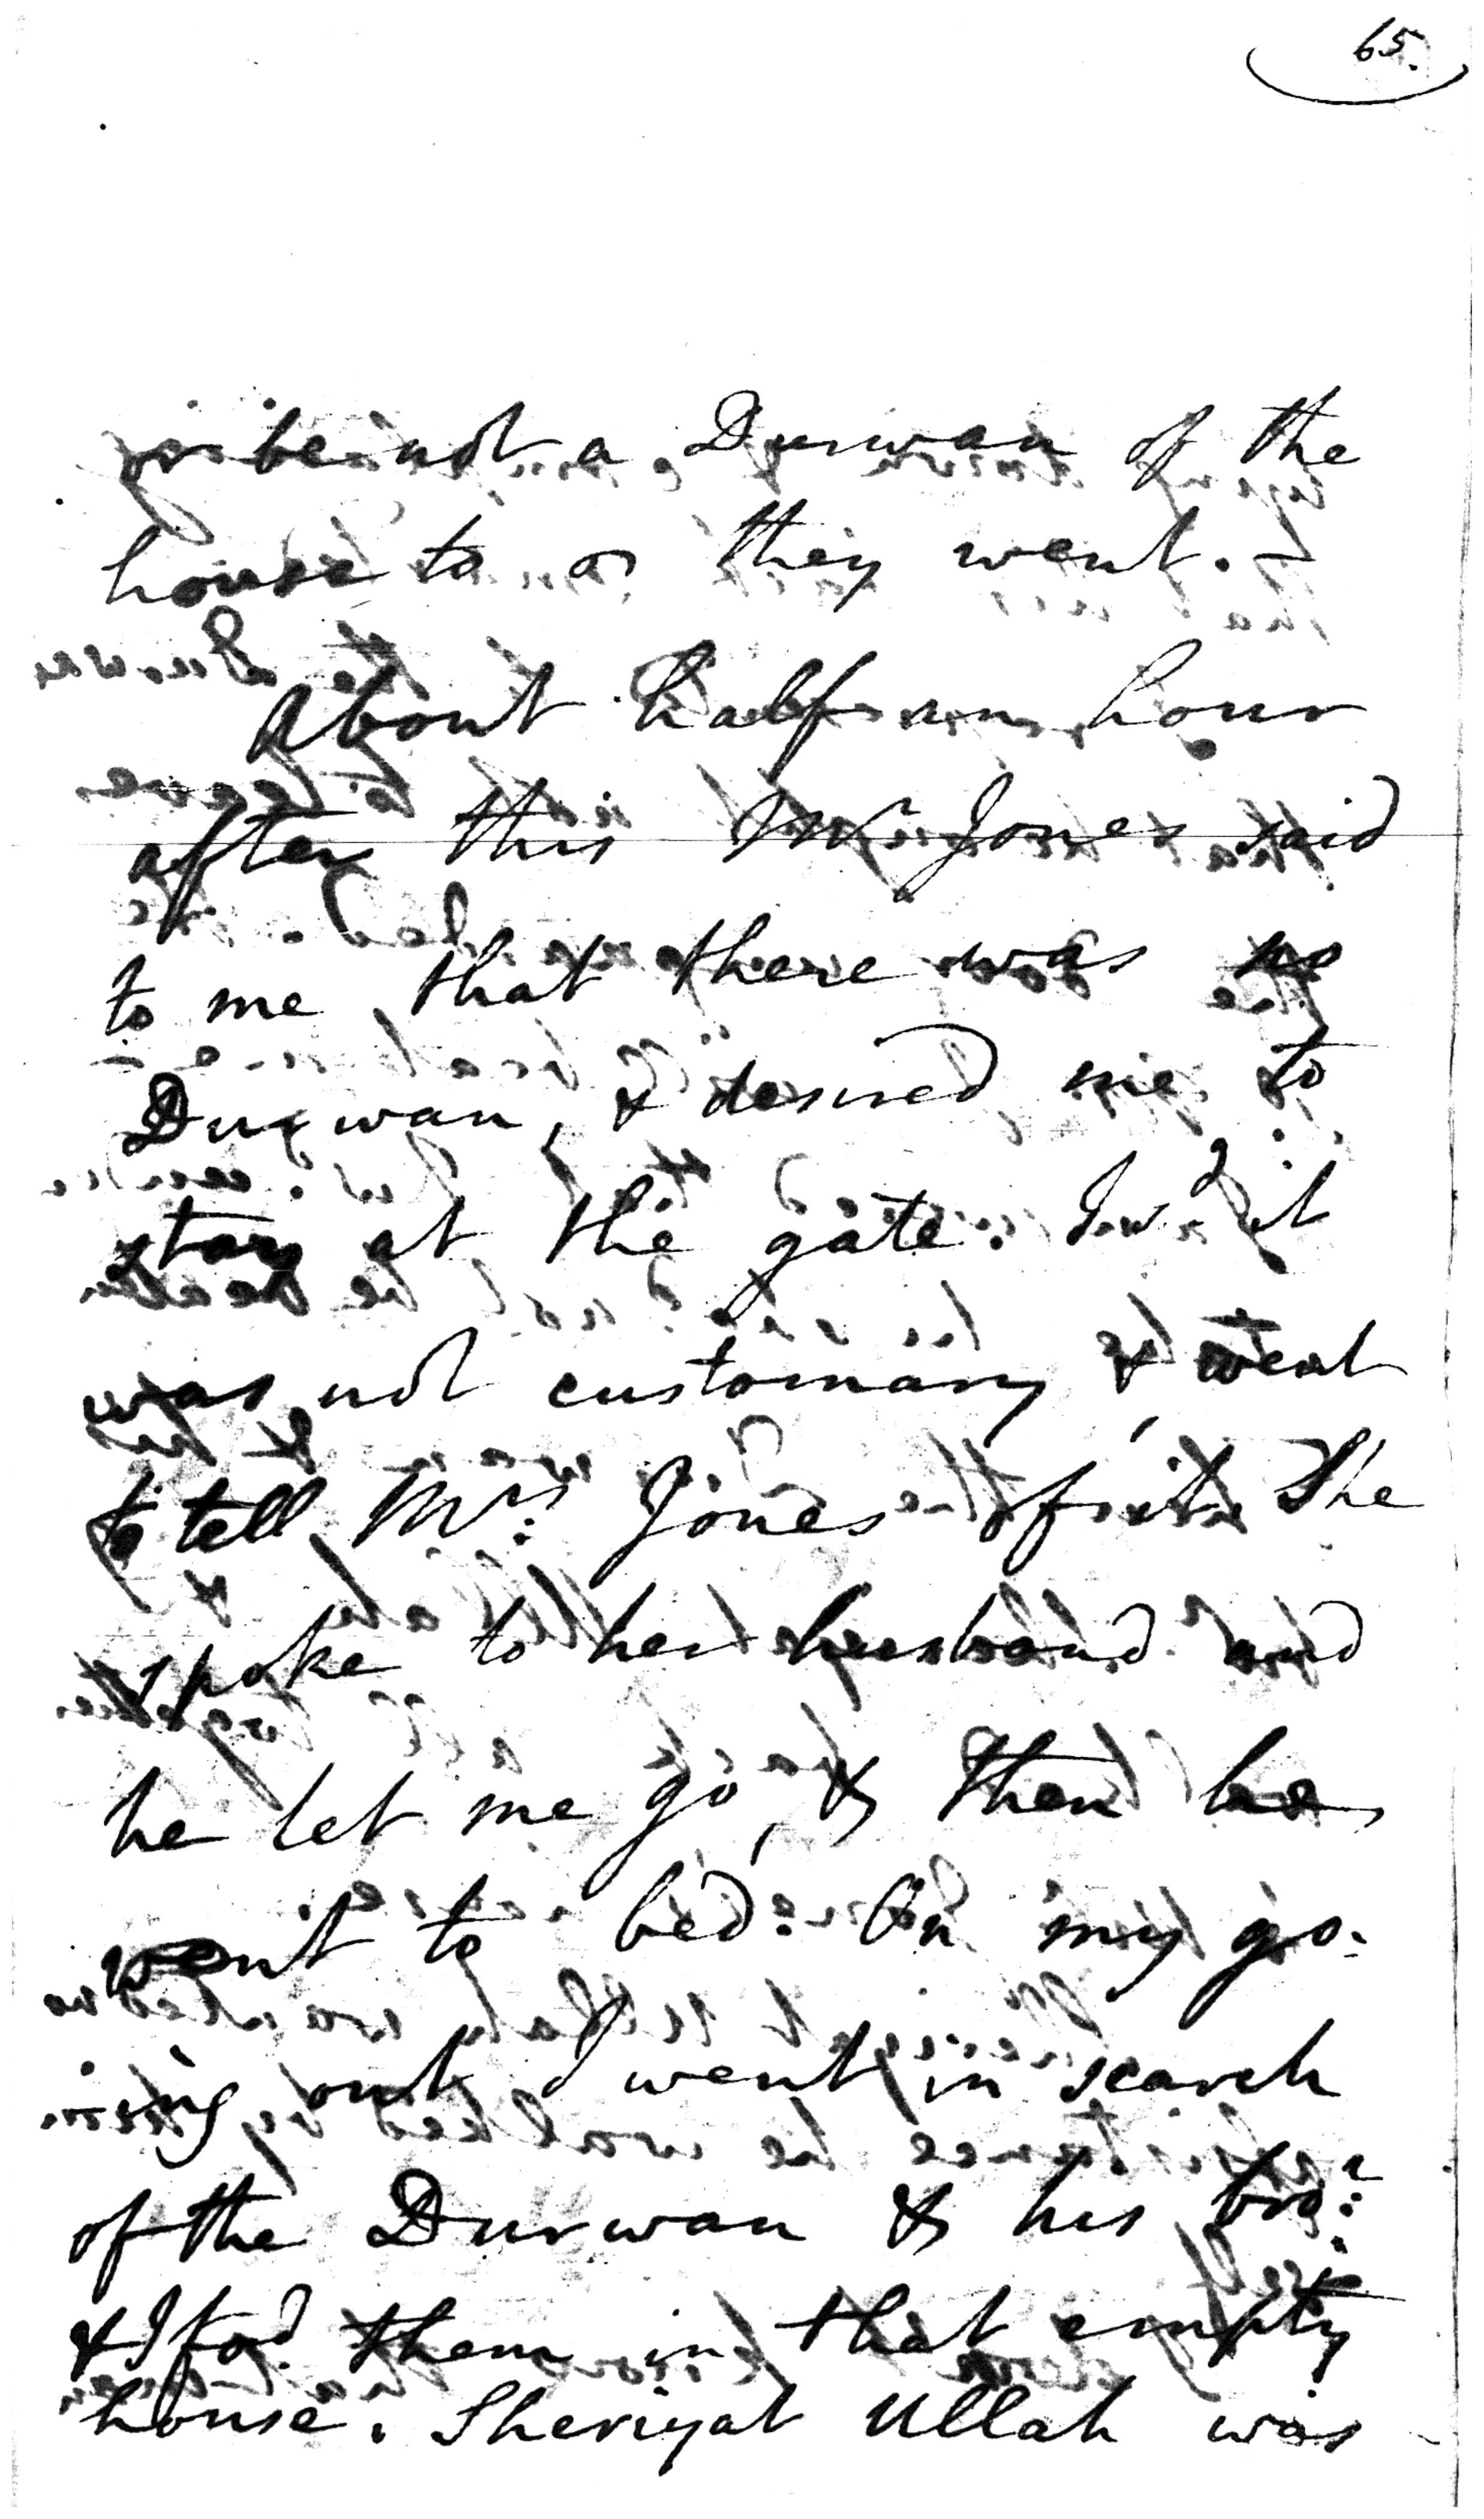 65.
be not a Durwan of the
house to they went. —
About half an hour
after this Mr Jones said
to me that there was no
Durwan, & desired me to
stay at the gate. I sd it
was not customary, & went
to tell Mrs: Jones of it. She
spoke to her husband and
he let me go, & then he
went to bed. On my go-
-ing out I went in search
of the Durwan & his bror:
& I fod them in that empty
house. Sheriyat Ullah was